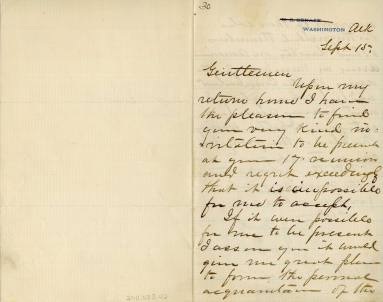 30
U. S. SENATE
WASHINGTON Ark
Sept 15,
Gentlemen
Upon my
return home I have
the pleasure to find
your very kind in-
vitation to be present
at your 17 reunion
and regret exceedingly
that it is impossible
for me to accept,
If it were possible
for me to be present
I assure you it would
give me great pleas
to form the personal
acquaintance of the